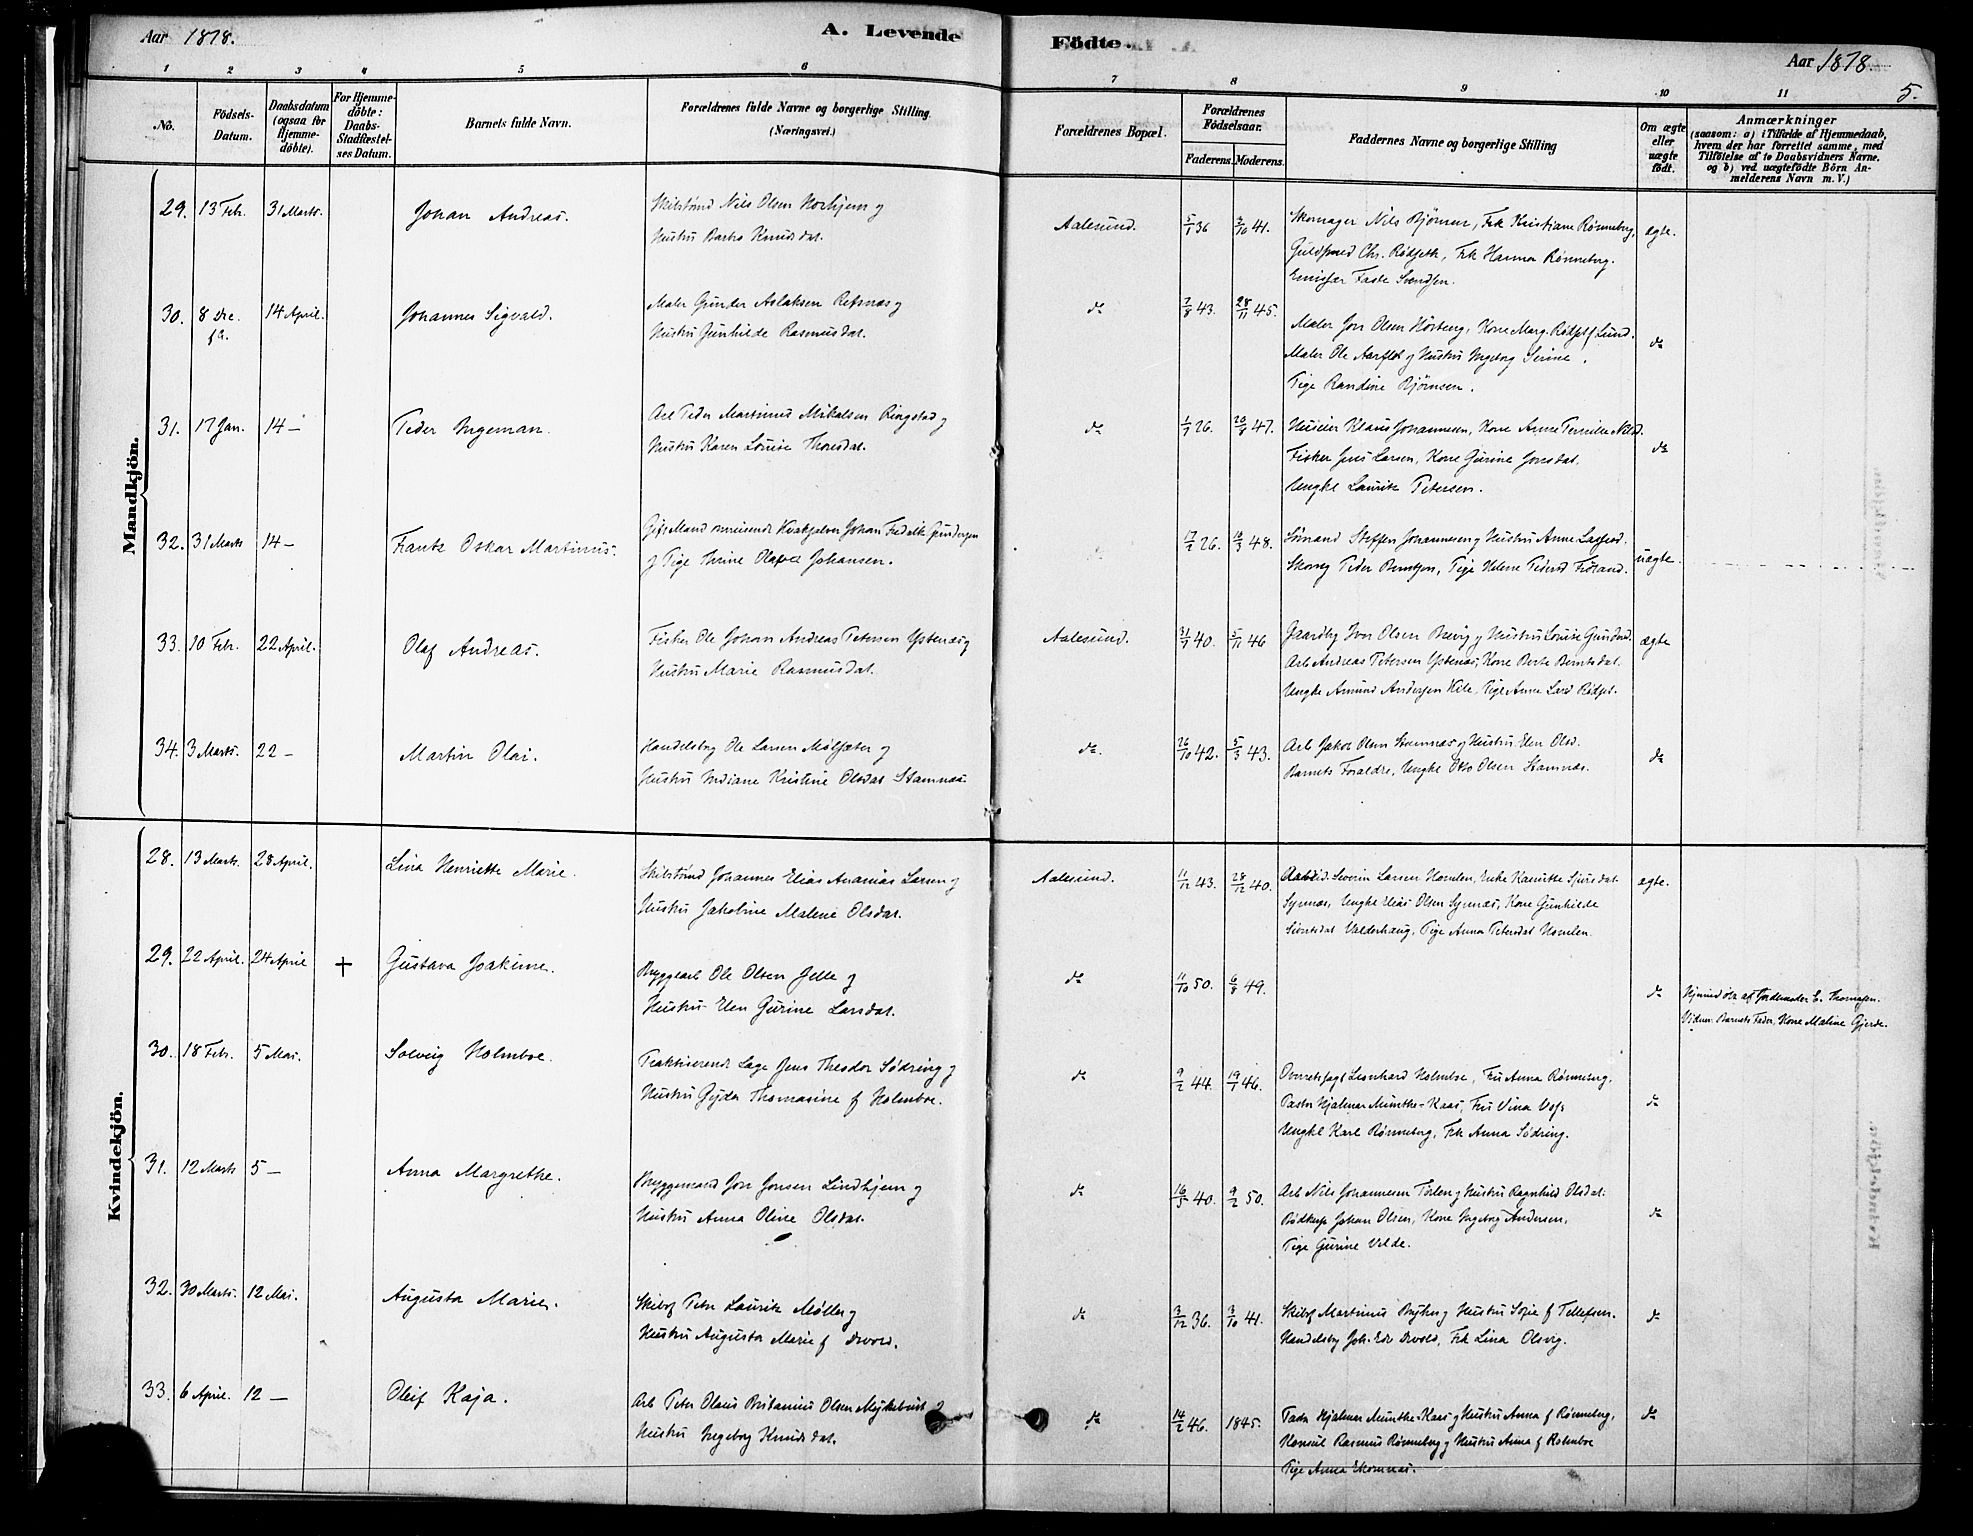 Aar 1878.
A. Levende
Födte.
Aar 1878.
5.
1 2 3 4 5 6 7 8 9 10 11
No.
Födsels-
Datum.
Daabsdatum
(ogsaa for
Hjemme-
döbte).
For Hjemme-
döbte:
Daabs-
Stadfæstel-
ses Datum.
Barnets fulde Navn.
Forældrenes fulde Navne og borgerlige Stilling
(Næringsvei.)
Forældrenes Bopæl.
Forældrenes
Födselsaar.
Faderens. Moderens.
Faddernes Navne og borgerlige Stilling
Om ægte
eller
uægte
födt.
Anmærkninger
(saasom: a) i Tilfælde af Hjemmedaab,
hvem der har forrettet samme, med
Tilföielse af to Daabsvidners Navne.
og b) ved uægtefödte Börn An-
melderens Navn m. V.)
Mandkjön.
29. 13 Febr. 31 Marts. Johan Andreas.
Nils Olsen Norhjem og
Hustru Barbro Knudsdat.
Aalesund. 5/1 36 3/10 41.
Skomager Nils Bjørnsen, Frk Kristiane Rønneberg,
Guldsmed Chr. Rødseth, Frk Hanna Rønneberg.
Emissær Faste Svendsen.
ægte.
30. 8 Dec. 14 April. Johannes Sigvald.
Maler Gunder Aslaksen Refsnæs og
Hustru Gunhilde Rasmusdat.
do 7/8 43. 28/11 45.
Maler Jon Olsen Hørberg, Kone Marg. Lund.
Maler Ole Aarflot og Hustru Ingeborg Serine.
Pige Randine Bjørnsen.
do
31. 17 Jan. 14 - Peder Ingeman.
Arb Peder Martinus Mikalsen Ringstad og
Hustru Karen Louise Thoresdat.
do 1/7 26. 20/8 47.
Huseier Klaus Johannesen, Kone Anne Pernille Nilsd.
Fisker Jens Larsen, Kone Gurine Jonsdat.
Ungkl Lauritz Petersen.
do
32. 31 Marts 14 - Frantz Oskar Martinus.
Gift Mand omreisende Johan Fredrik Gundersen
og Pige Thrine Olafva Johansen.
17/2 26. 10/3 48.
Sømand Steffen Johannesen og Hustru Anne
Skomg Peder Berntsen, Pige Helene Pedersd
uægte.
33. 10 Febr. 22 April. Olaf Andreas.
Fisker Ole Johan Andreas Petersen Ystenæs og
Hustru Marie Rasmusdat.
Aalesund. 31/7 40. 5/11 46
Gaardbr Iver Olsen Brevig og Hustru Louise
Arb Andreas Petersen Ystenæs, Kone Berte Berntsdat.
Ungkl Amund Andersen Kile, Pige Anne Larsd
ægte
34. 3 Marts. 22 - Martin Olai.
Handelsbrg Ole Larsen Mølsæter og
Hustru Indiane Kristine Olsdat Stamnæs
do. 26/10 42. 5/3 43.
Arb Jakob Olsen Stamnæs og Hustru Elen Olsd.
Barnets Forældre, Ungkl Otto Olsen Stamnæs.
do
Kvindekjön.
28. 13 Marts. 28 April. Lina Henriette Marie.
Johannes Elias Ananias Larsen og
Hustru Jakobine Malene Olsdat.
Aalesund. 11/12 43. 28/12 40.
Severin Larsen Homlen, Enke Sjursdat.
Synnæs, Ungkl Elias Olsen Synnæs, Kone Gunhilde
Sivertsdat Valderhaug, Pige Anna Petersdat Homlen.
ægte.
29. 22 April. 24 April + Gustava Joakime.
Bryggearb Ole Olsen Gjelle og
Hustru Elen Gurine Larsdat.
do 11/10 50. 6/8 49.
do
Hjemmedøbt af Jordemoder E. Thomasen.
Vidner. Barnets Fader, Kone Maline Gjerde.
30. 18 Febr. 5 Mai. Solveig Holmboe.
Praktiserende Læge Jens Theodor Sødring og
Hustru Gyda Thomasine f Holmboe.
do 9/2 44. 19/1 46.
Overretssagf Leonhard Holmboe, Fru Anna Rønneberg,
Pastor Hjalmar Munthe-Kaas, Fru Vina Voss
Ungkl Karl Rønneberg, Frk Anna Sødring.
do
31. 12 Marts 5 - Anna Margrethe.
Bryggemand Jon Jonsen Lindhjem og
Hustru Anna Oline Olsdat.
do 16/5 40. 9/2 50.
Arb Nils Johannesen Torlen og Hustru Ragnhild Olsdat.
Bødkerp Johan Olsen, Kone Ingeborg Andersen,
Pige Gurine Velde.
do
32. 30 Marts. 12 Mai. Augusta Marie.
Skibsf Peter Lauritz Møller og
Hustru Augusta Marie f Devold.
do 3/12 36. 3/10 41.
Skibsf Martinus og Hustru Sofie f Tellefsen.
Handelsbrg Joh. Edv Devold, Frk Lina Olsvig.
do
33. 6 April. 12 - Oleif Kaja.
Arb Peter Olaus Britanius Olsen Myklebust og
Hustru Ingeborg Knudsdat.
do 14/2 46. 1845.
Pastor Hjalmar Munthe-Kaas og Hustru Anna f Rønneberg,
Konsul Rasmus Rønneberg og Hustru Anna f Holmboe
Pige Anna Ekornæs.
do